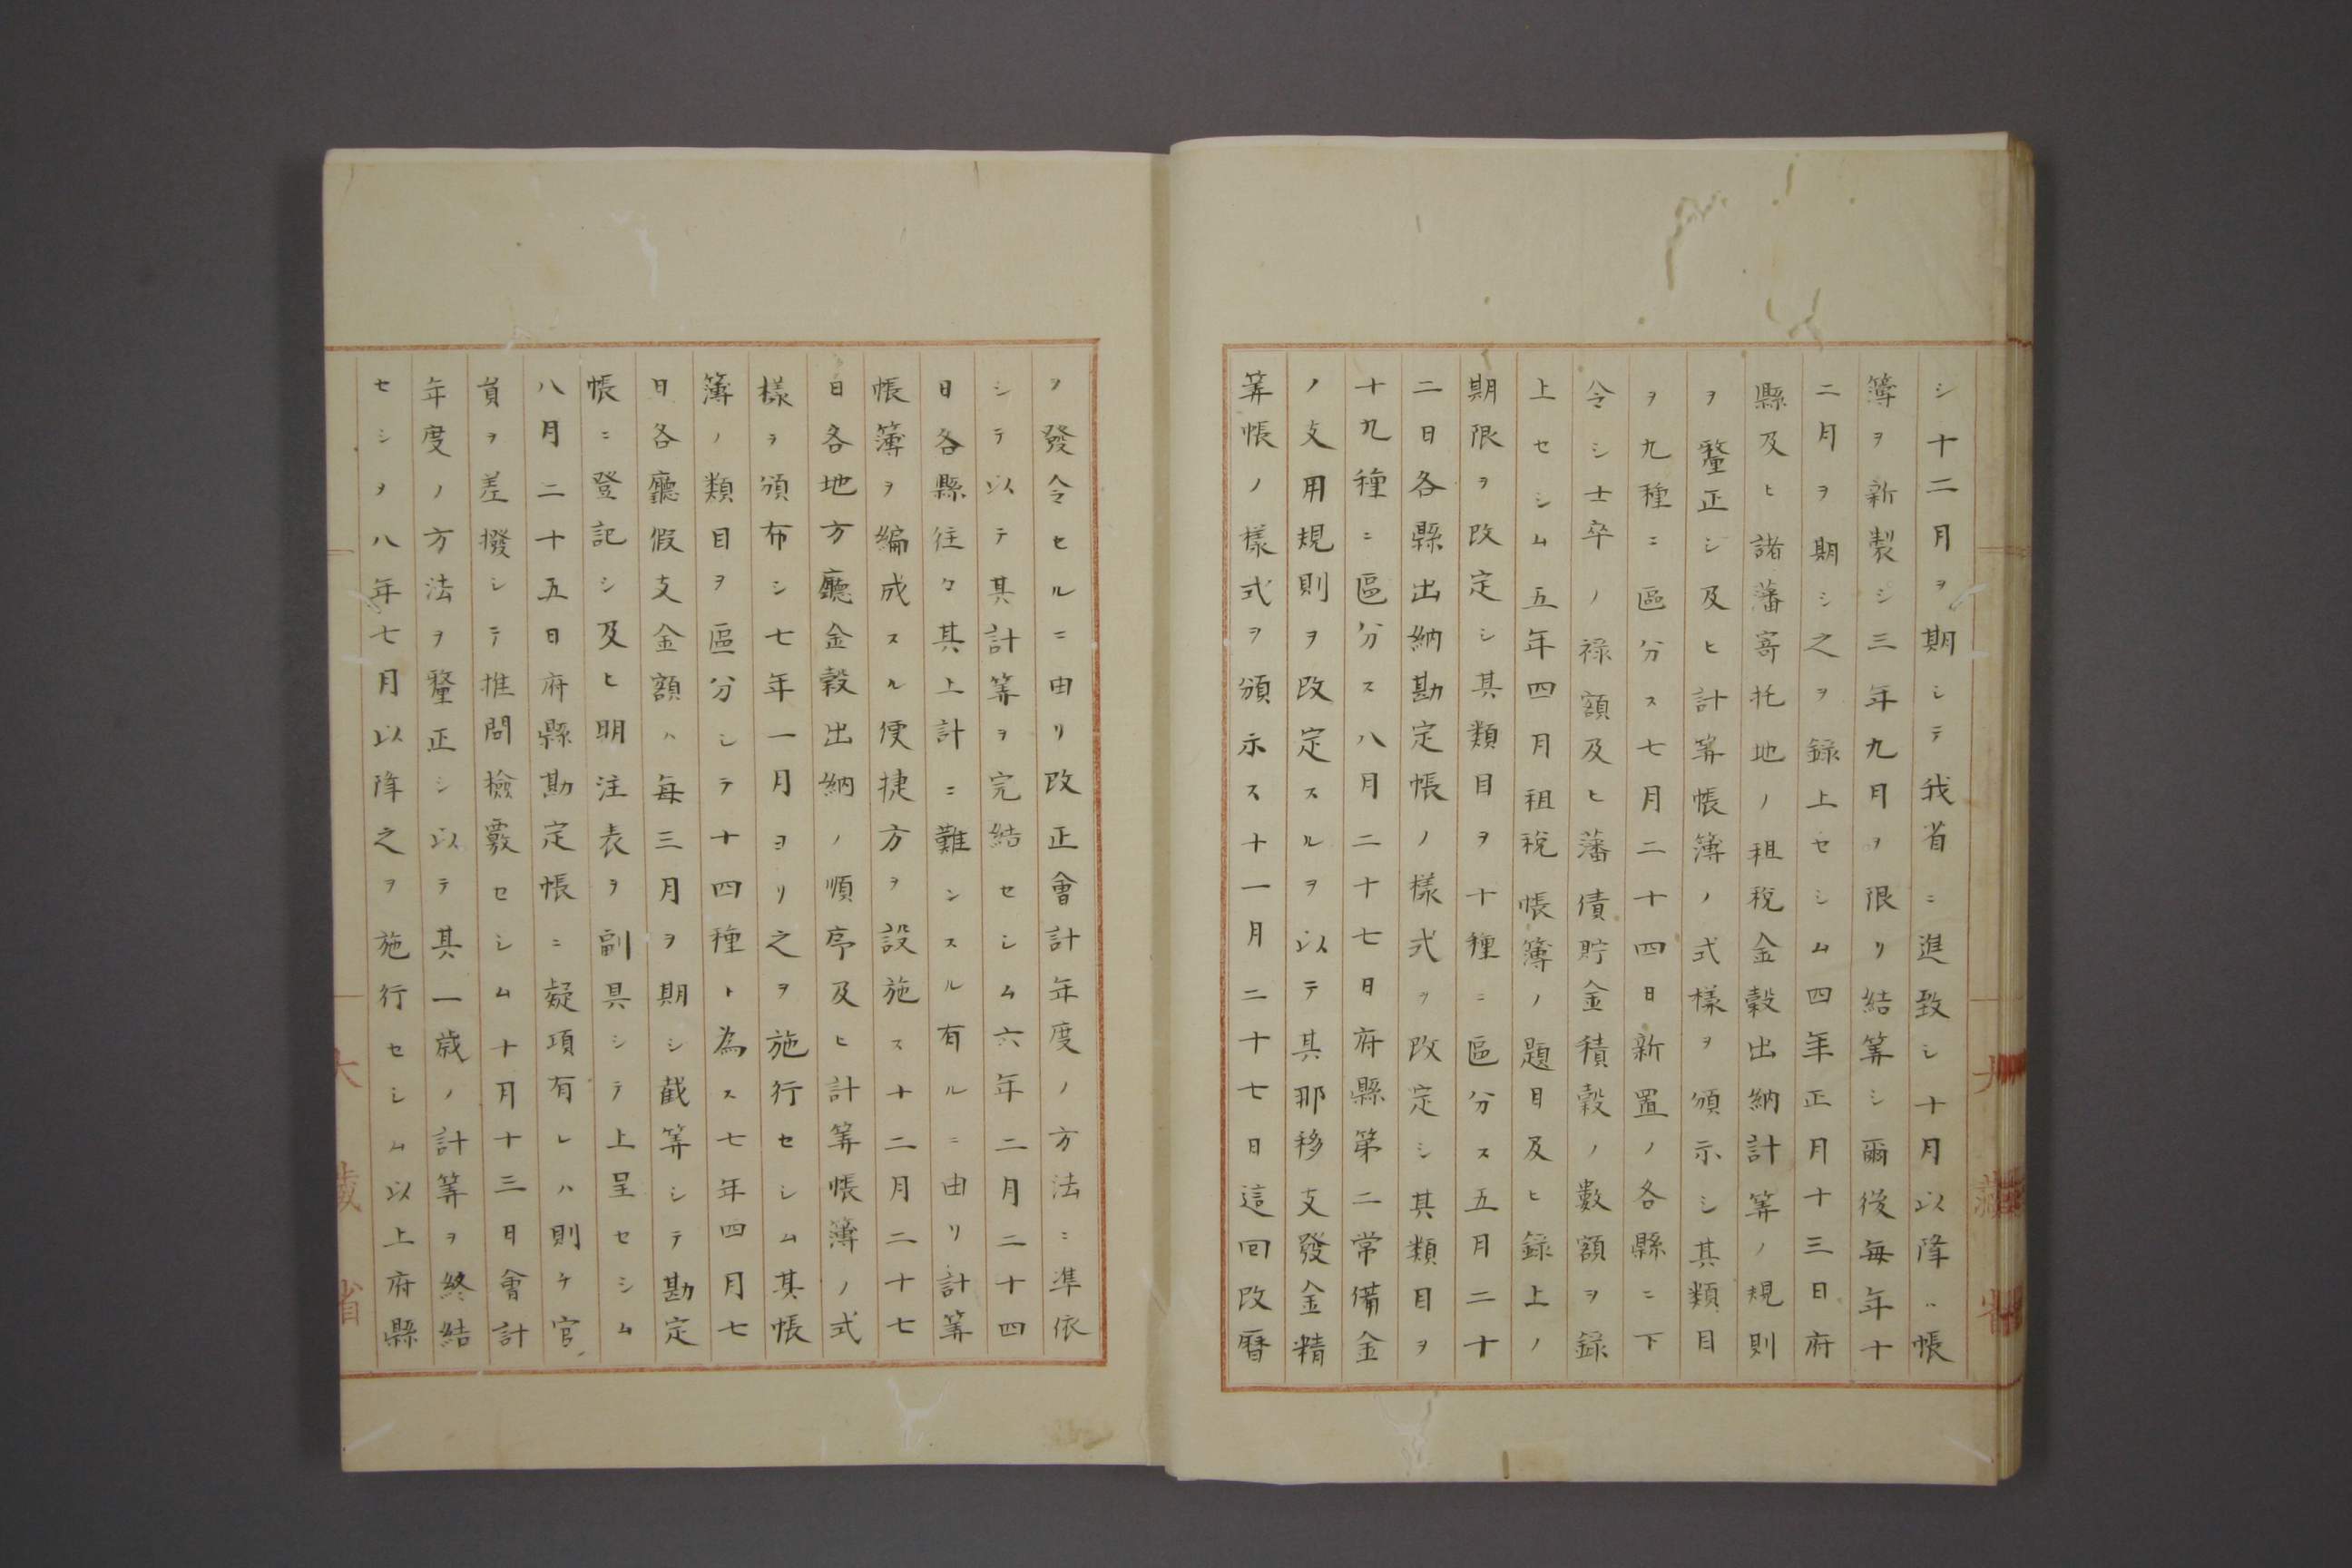 シ十二月ヲ期シテ我省ニ進致シ十月以降ハ帳
簿ヲ新製シ三年九月ヲ限リ結筭シ爾後每年十
二月ヲ期シ之ヲ錄上セシム四年正月十三日府
縣及ヒ諸藩寄托地ノ租稅金穀出納計筭ノ規則
ヲ釐正シ及ヒ計筭帳簿ノ式樣ヲ頒示シ其類目
ヲ九種ニ區分ス七月二十四日新置ノ各縣ニ下
令シ士卒ノ祿額及ヒ藩債貯金積穀ノ數額ヲ錄
上セシム五年四月租稅帳簿ノ題目及ヒ錄上ノ
期限ヲ改定シ其類目ヲ十種ニ區分ス五月二十
二日各縣出納勘定帳ノ樣式ヲ改定シ其類目ヲ
十九種ニ區分ス八月二十七日府縣第二常備金
ノ支用規則ヲ改定スルヲ以テ其那移支發金精
筭帳ノ樣式ヲ頒示ス十一月二十七日這回改曆
ノ發令セルニ由リ改正會計年度ノ方法ニ準依
シテ以テ其計筭ヲ完結セシム六年二月二十四
日各縣往々其上計ニ難シスル有ルニ由リ計筭
帳簿ヲ編成スル便捷方ヲ設施ス十二月二十七
日各地方廳金穀出納ノ順序及ヒ計筭帳簿ノ式
樣ヲ頒布シ七年一月ヨリ之ヲ施行セシム其帳
簿ノ類目ヲ區分シテ十四種ト為ス七年四月七
日各廳假支金額ハ每三月ヲ期シ截筭シテ勘定
帳ニ登記シ及ヒ明注表ヲ副具シテ上呈セシム
八月二十五日府縣勘定帳ニ疑項有レハ則チ官
員ヲ差撥シテ推問檢覈セシム十月十三日會計
年度ノ方法ヲ釐正シ以テ其一歲ノ計筭ヲ終結
セシヲ八年七月以降之ヲ施行セシム以上府縣
大藏省